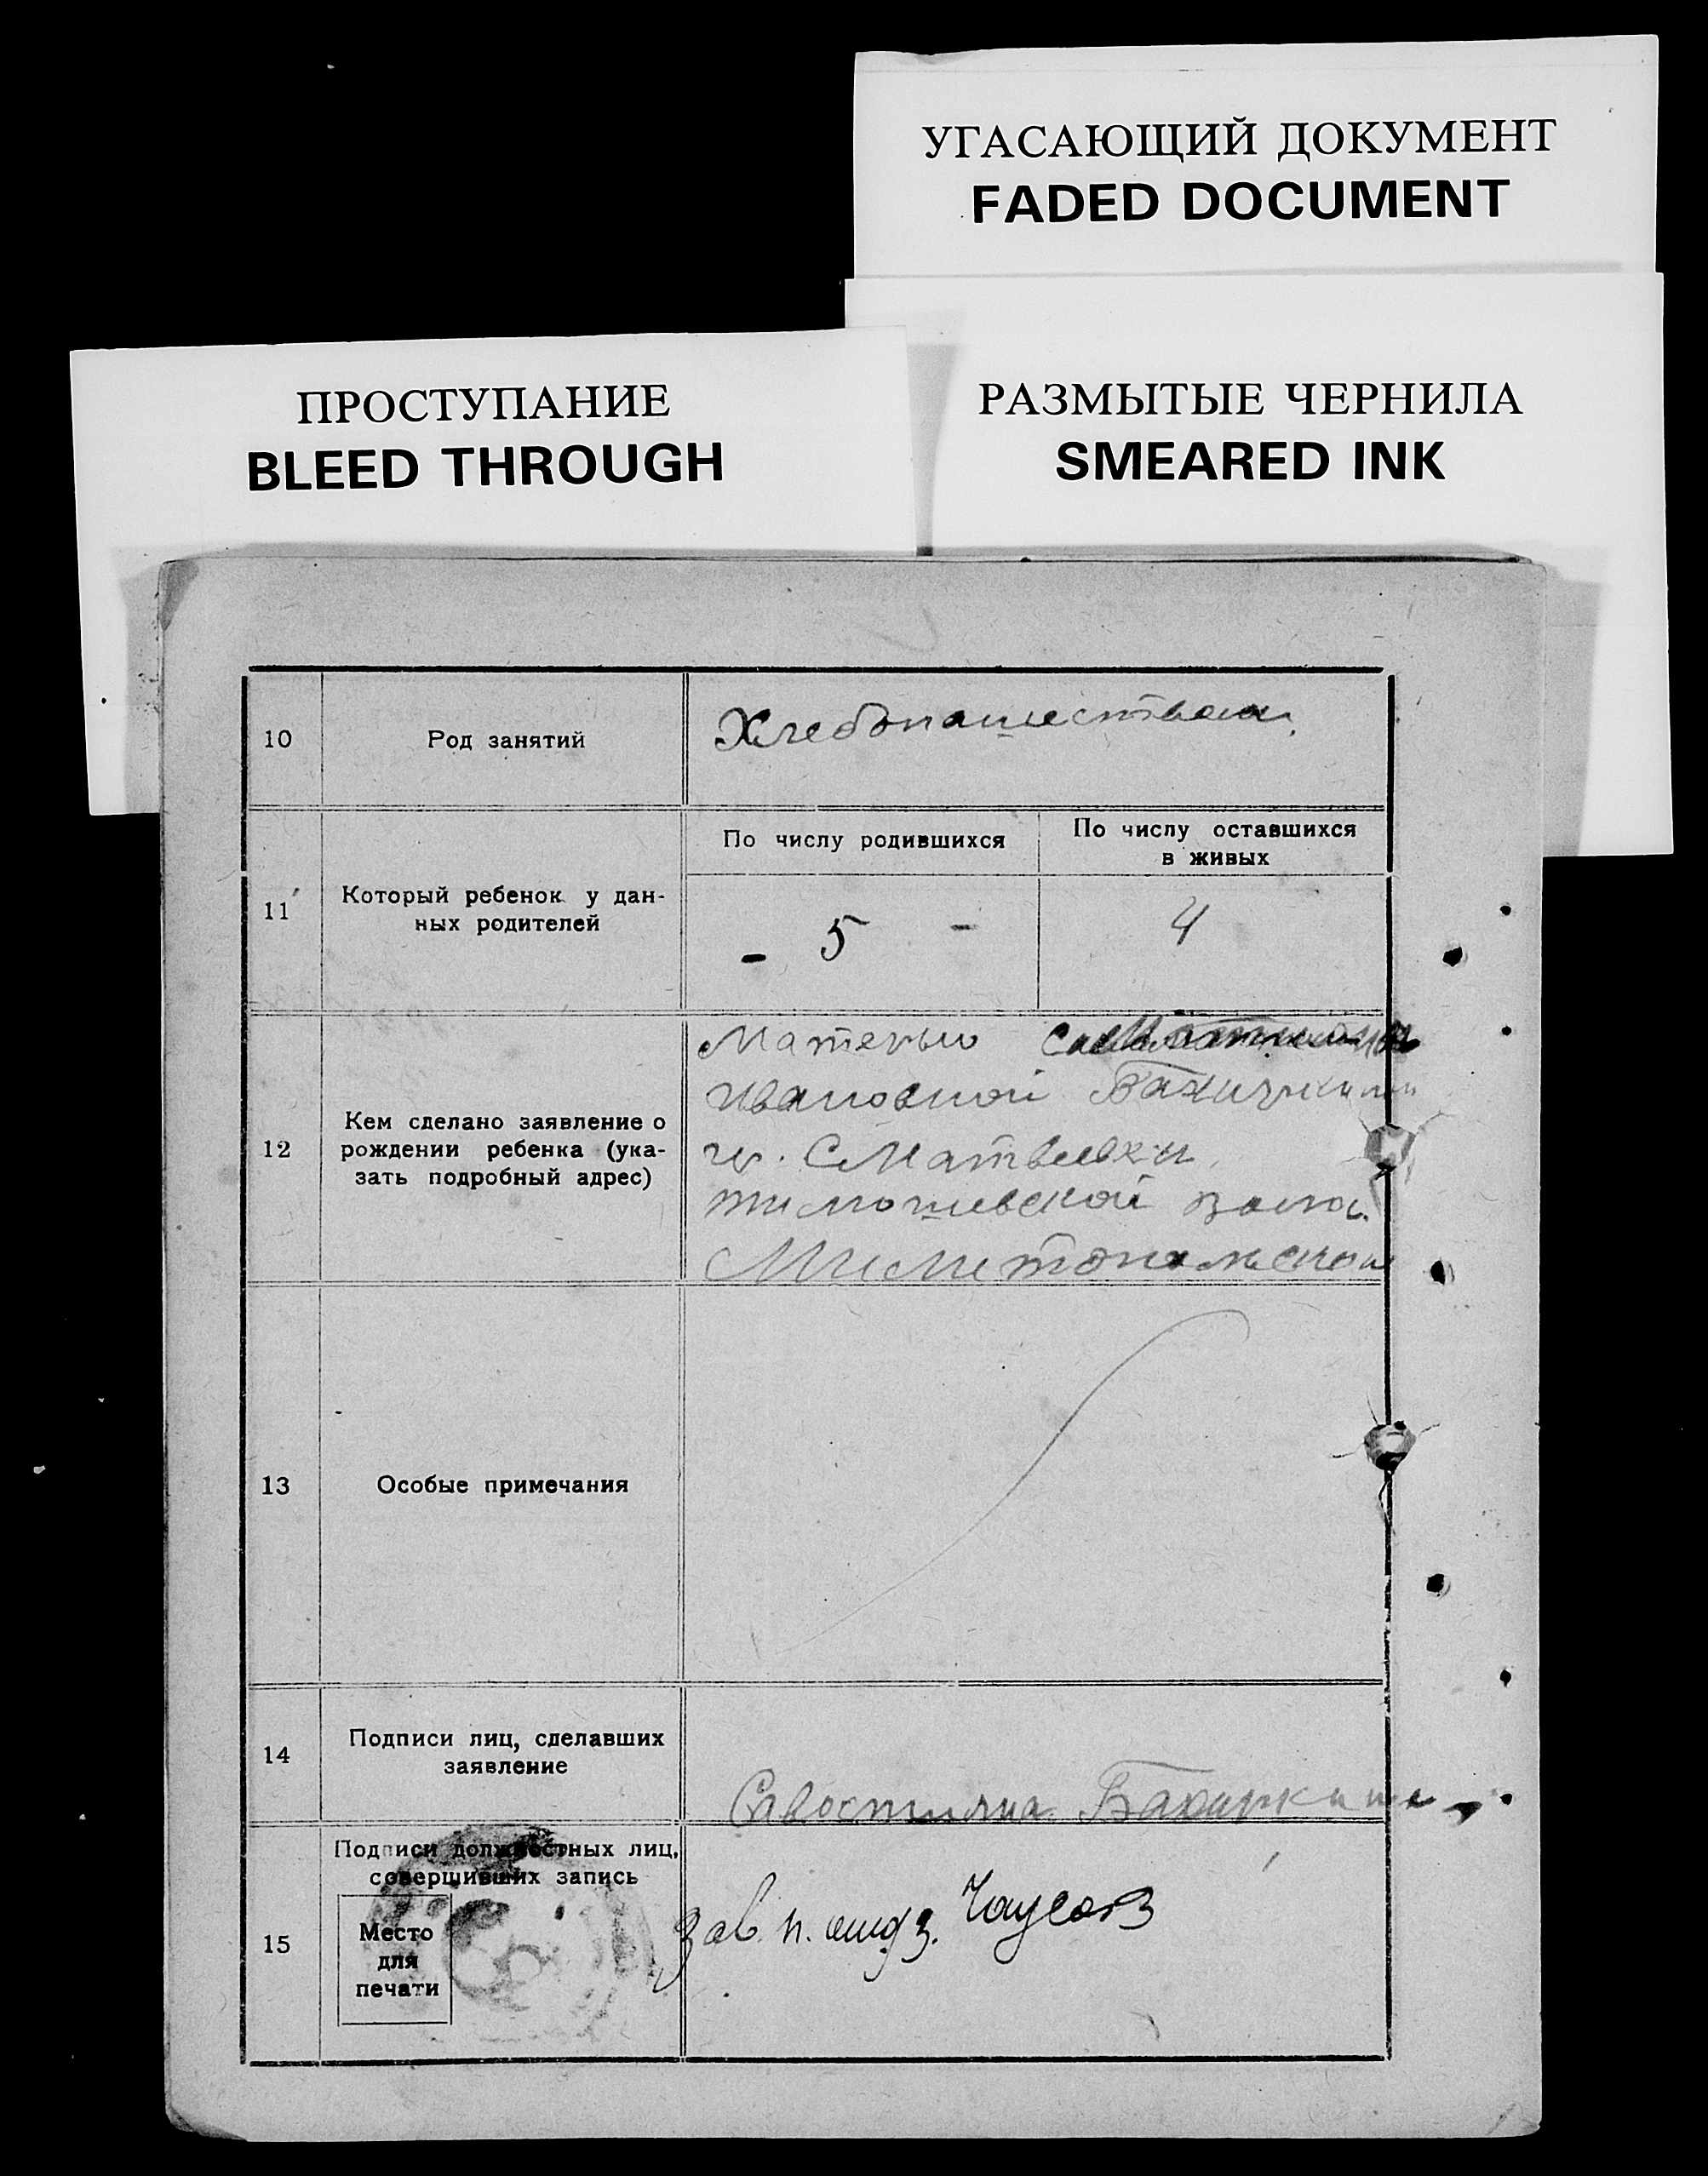 УГАСАЮЩИЙ ДОКУМЕНТ
FADED DOCUMENT
ПРОСТУПАНИЕ
BLEED THROUGH
РАЗМЫТЫЕ ЧЕРНИЛА
SMEARED INK
10
Род занятий
Хлебопашеством
11
Который ребенок у дан-
ных родителей
По числу родившихся
По числу оставшихся
в живых
- 5 -
4
12
Кем сделано заявление о
рождении ребенка (ука-
зать подробный адрес)
Матерью
Ивановной
гр. С Матвеевки
тимошевской волос.
13
Особые примечания
14
Подписи лиц, сделавших
заявление
15
Подписи должностных лиц,
совершивших запись
Место
для
печати
Зав. п.